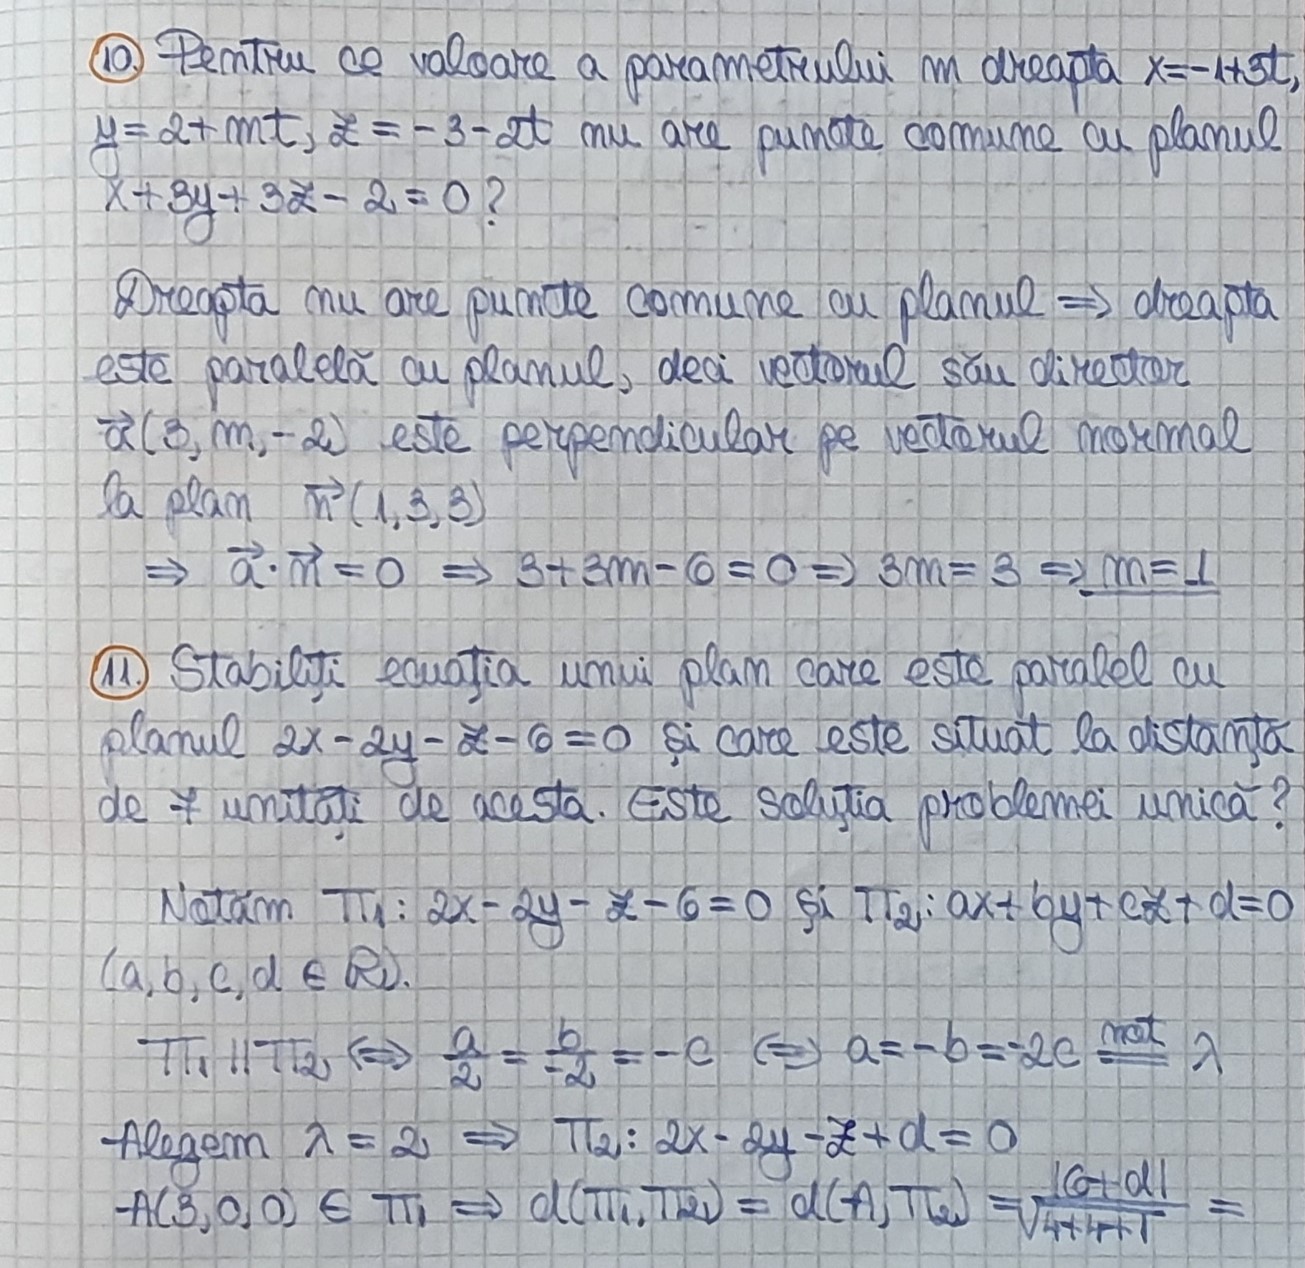 10. Pentru ce valoare a parametrului m dreapta x=-1+3t,
y=2+mt, z=-3-2t nu are puncte comune cu planul
x+3y+3z-2=0?
Dreapta nu are puncte comune cu planul ⇒ dreapta
este paralelă cu planul, deci vectorul său director
a⃗(3,m,-2) este perpendicular pe vectorul normal
la plan n⃗(1,3,3)
⇒ a⃗·n⃗=0 ⇒ 3+3m-6=0 ⇒ 3m=3 ⇒ m=1
11. Stabiliți ecuația unui plan care este paralel cu
planul 2x-2y-z-6=0 și care este situat la distanța
de 7 unități de acesta. Este soluția problemei unică?
Notăm π₁: 2x-2y-z-6=0 și π₂: ax+by+cz+d=0
(a,b,c,d ∈ ℝ).
π₁ || π₂ ⇔ a/2 = b/-2 = -c ⇔ a=-b=-2c not= λ
Alegem λ=2 ⇒ π₂: 2x-2y-z+d=0
A(3,0,0) ∈ π₁ ⇒ d(π₁,π₂) = d(A,π₂) = |6+d|/√4+4+1 =